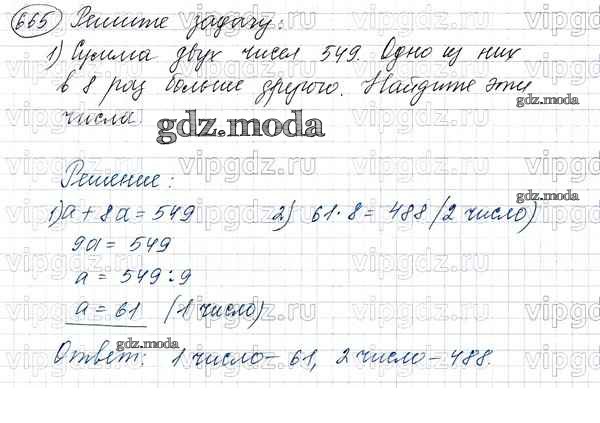 665 Решите задачу:
1) Сумма двух чисел 549. Одно из них
в 8 раз больше другого. Найдите эти
числа.
gdz.moda
gdz.moda
Решение:
gdz.moda
1) a + 8a = 549 2) 61·8 = 488 (2 число)
9a = 549
a = 549 : 9
a = 61 (1 число)
gdz.moda
Ответ: 1 число – 61, 2 число – 488.
vipgdz.ru